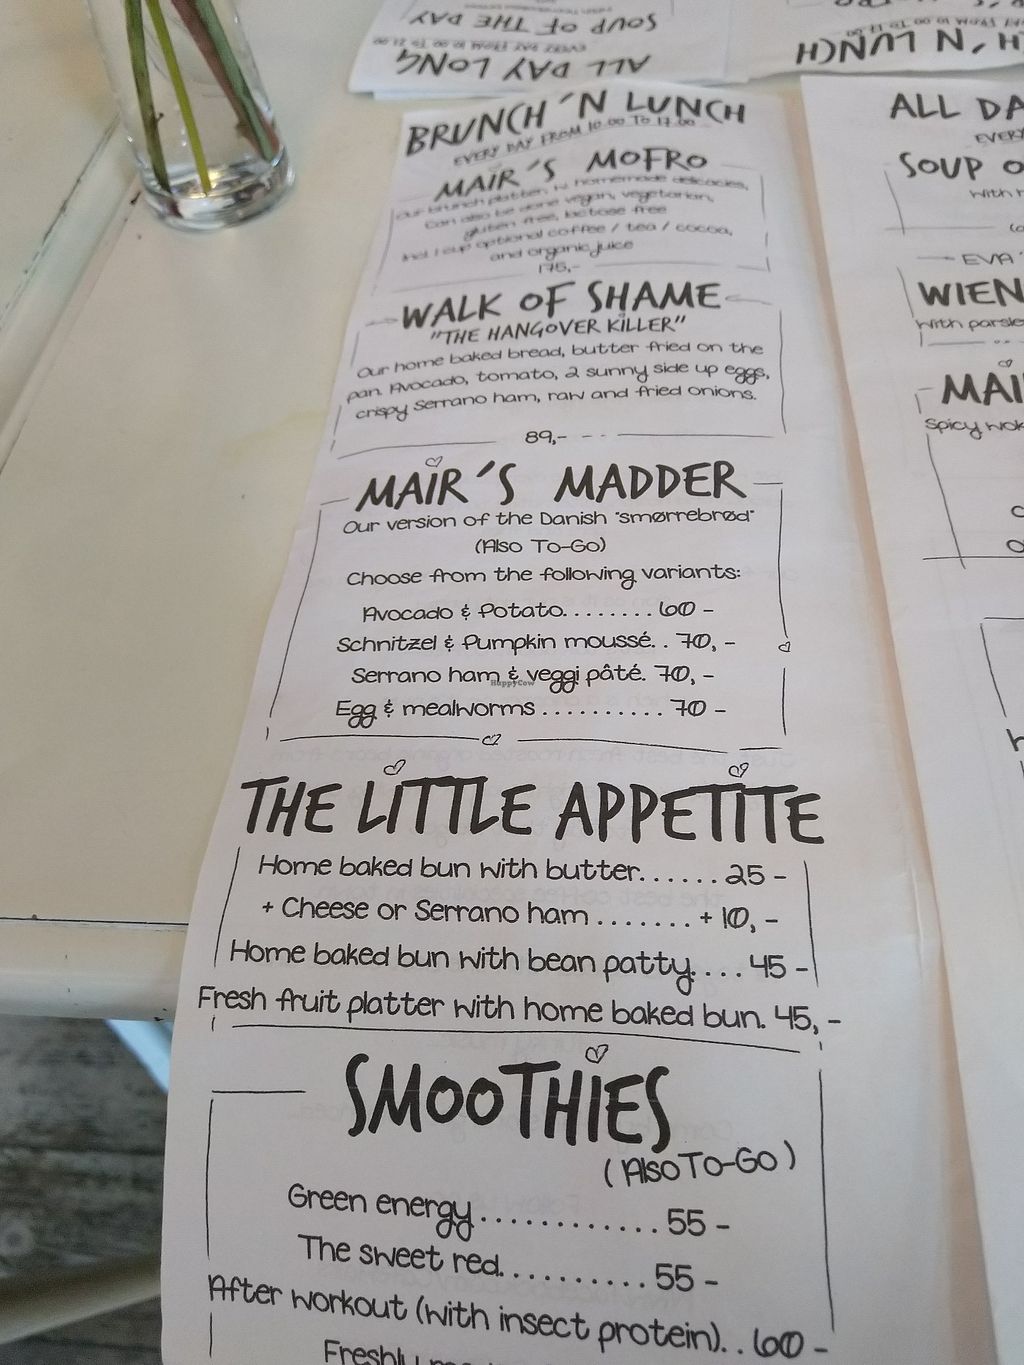 SOUP OF THE DAY
EVERY DAY FROM 10.00 TO 21.00
ALL DAY LONG
'N LUNCH
BRUNCH 'N LUNCH
EVERY DAY FROM 10.00 TO 17.00
MAIR'S MOFRO
Our brunch platter, w homemade delicacies,
Can also be done vegan, vegetarian,
gluten free, lactose free
Incl 1 cup optional coffee / tea / cocoa,
and organic juice
175,-
WALK OF SHAME
"THE HANGOVER KILLER"
Our home baked bread, butter fried on the
pan. Avocado, tomato, 2 sunny side up eggs,
crispy Serrano ham, raw and fried onions.
89,-
MAIR'S MADDER
Our version of the Danish "smørrebrød"
(Also To-Go)
Choose from the following variants:
Avocado & Potato........60 -
Schnitzel & Pumpkin moussé.. 70,-
Serrano ham & veggi pâté. 70,-
HappyCow
Egg & mealworms.......... 70 -
THE LITTLE APPETITE
Home baked bun with butter...... 25 -
+ Cheese or Serrano ham ....... + 10,-
Home baked bun with bean patty.... 45 -
Fresh fruit platter with home baked bun. 45,-
SMOOTHIES
(Also To-Go)
Green energy............ 55 -
The sweet red.......... 55 -
After workout (with insect protein).. 60 -
ALL DA
EVERY
SOUP O
With
EVA'
WIEN
With parsle
MAI
Spicy wok